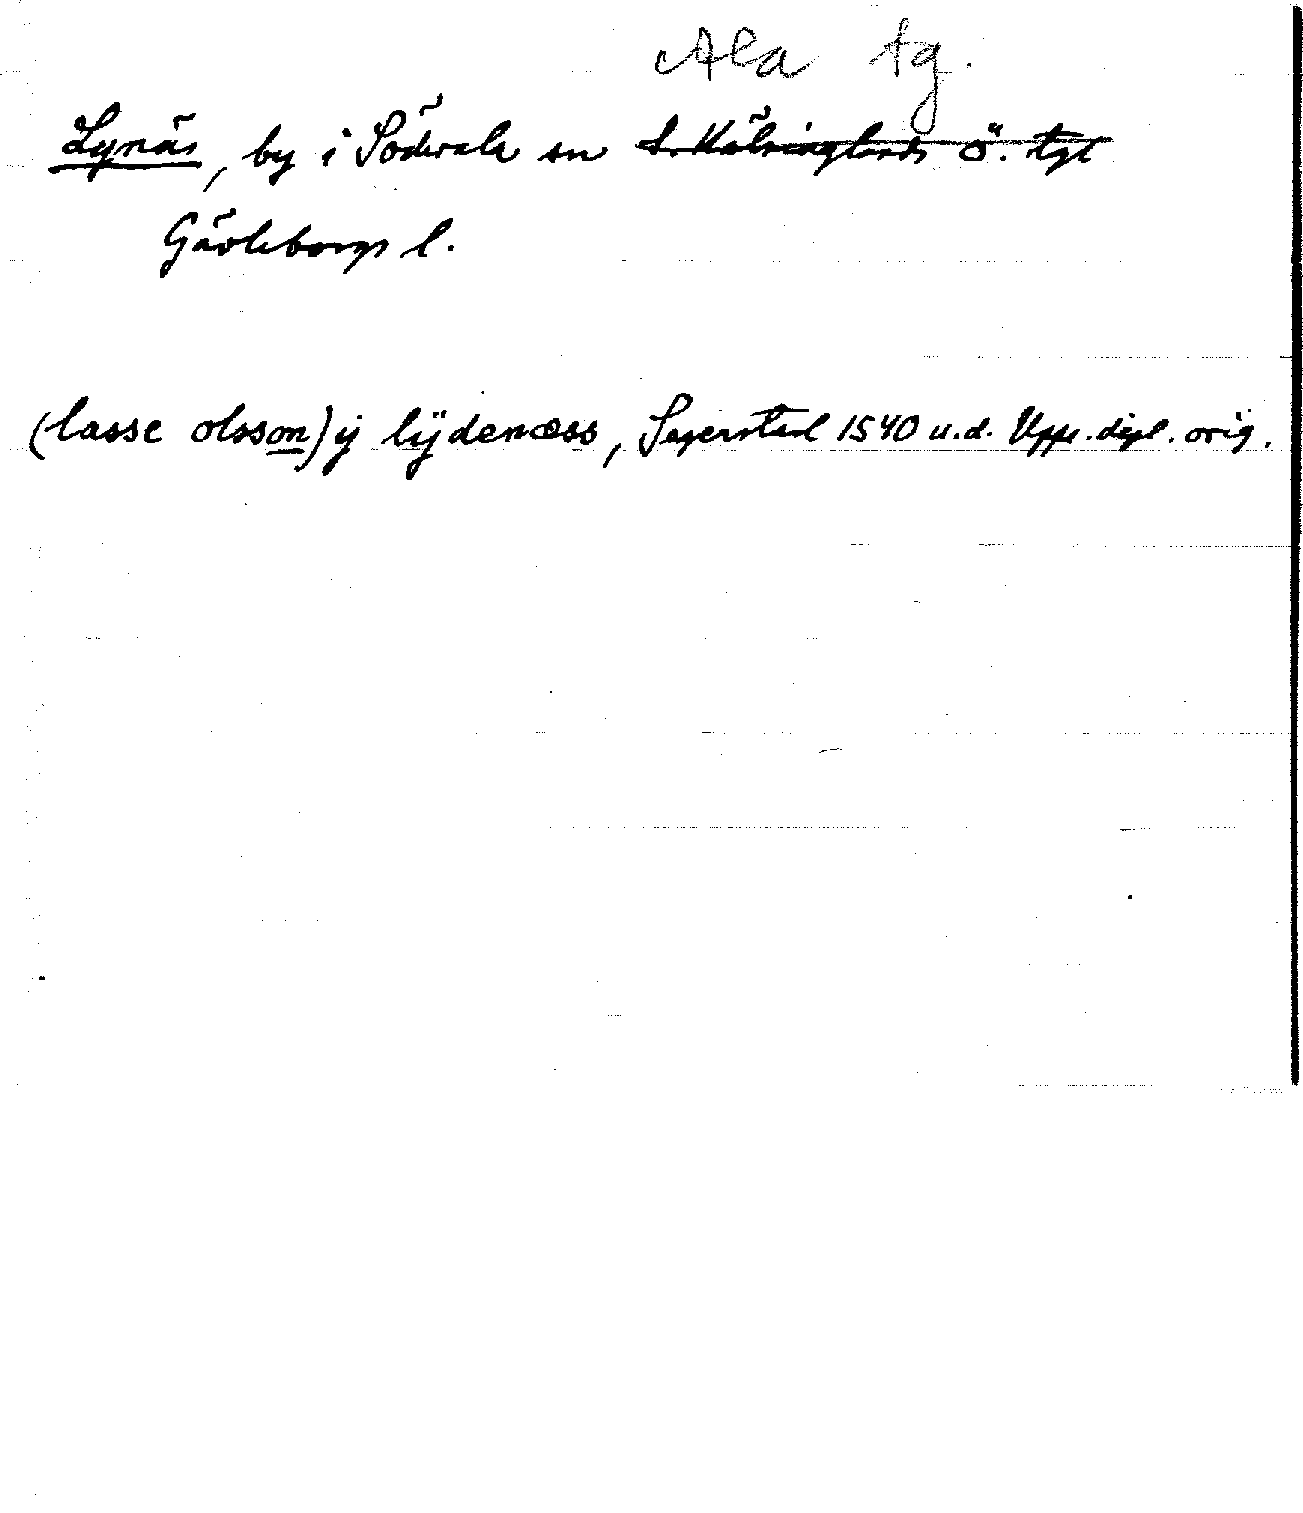 Ala tg.
Lynäs, by i Söderala sn S. Hälsinglands ö. tgl
Gävleborgs l.
(lasse olsson) ÿ lÿdenæss, Segersta 1540 u.d. Upps. dipl. orig.